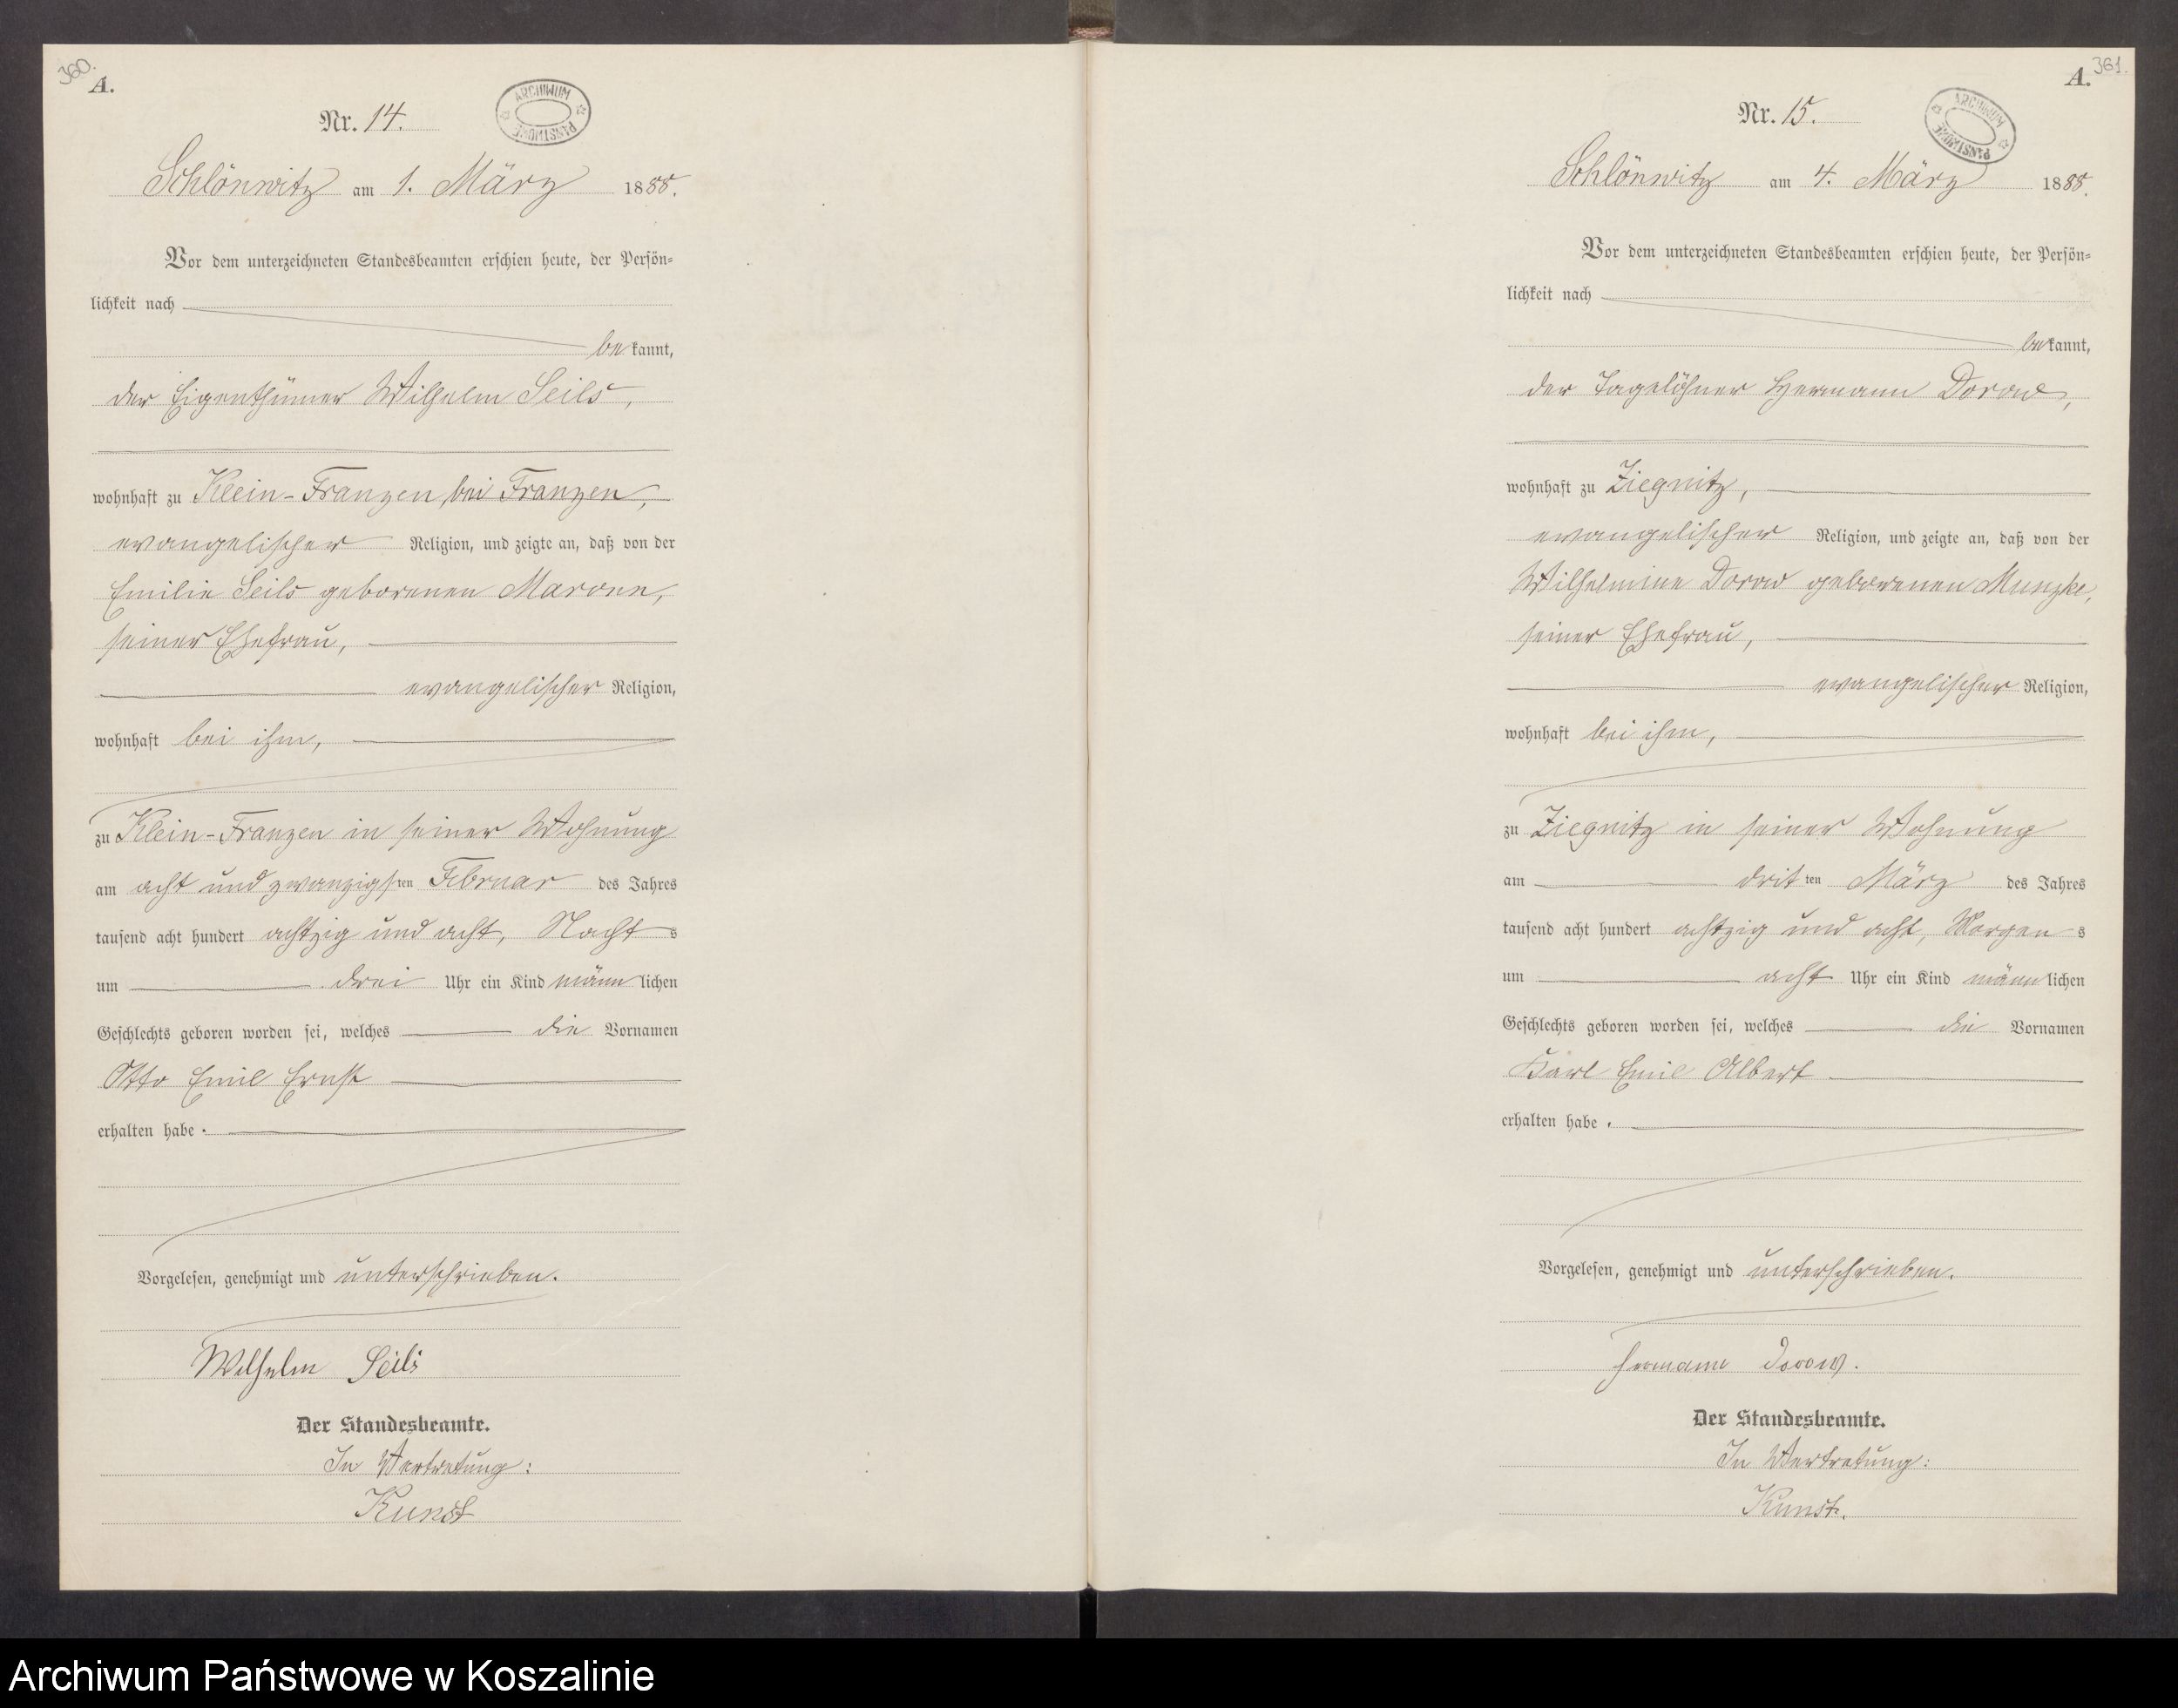 360.
A.
Nr. 14.
ARCHIWUM PAŃSTWOWE
Schlönwitz am 1. März 1888.
Vor dem unterzeichneten Standesbeamten erschien heute, der Persön=
lichkeit nach
bekannt,
der Eigenthümer Wilhelm Seils,
wohnhaft zu Klein-Franzen, bei Franzen,
evangelischer Religion, und zeigte an, daß von der
Emilie Seils geborenen
seiner Ehefrau,
evangelischer Religion,
wohnhaft bei ihm,
zu Klein-Franzen in seiner Wohnung
am acht und zwanzigsten Februar des Jahres
tausend acht hundert achtzig und acht, Nachts
um drei Uhr ein Kind männlichen
Geschlechts geboren worden sei, welches die Vornamen
Otto Emil Ernst
erhalten habe.
Vorgelesen, genehmigt und unterschrieben.
Wilhelm Seils
Der Standesbeamte.
In Vertretung:
Kunst
361.
A.
Nr. 15.
ARCHIWUM PAŃSTWOWE
Schlönwitz am 4. März 1888.
Vor dem unterzeichneten Standesbeamten erschien heute, der Persön=
lichkeit nach
bekannt,
der Tagelöhner Hermann Dorow,
wohnhaft zu Ziegnitz,
evangelischer Religion, und zeigte an, daß von der
Wilhelmine Dorow geborenen Munzke,
seiner Ehefrau,
evangelischer Religion,
wohnhaft bei ihm,
zu Ziegnitz in seiner Wohnung
am dritten März des Jahres
tausend acht hundert achtzig und acht, Morgens
um acht Uhr ein Kind männlichen
Geschlechts geboren worden sei, welches die Vornamen
Karl Emil Albert
erhalten habe.
Vorgelesen, genehmigt und unterschrieben.
Hermann Dorow.
Der Standesbeamte.
In Vertretung:
Kunst.
Archiwum Państwowe w Koszalinie